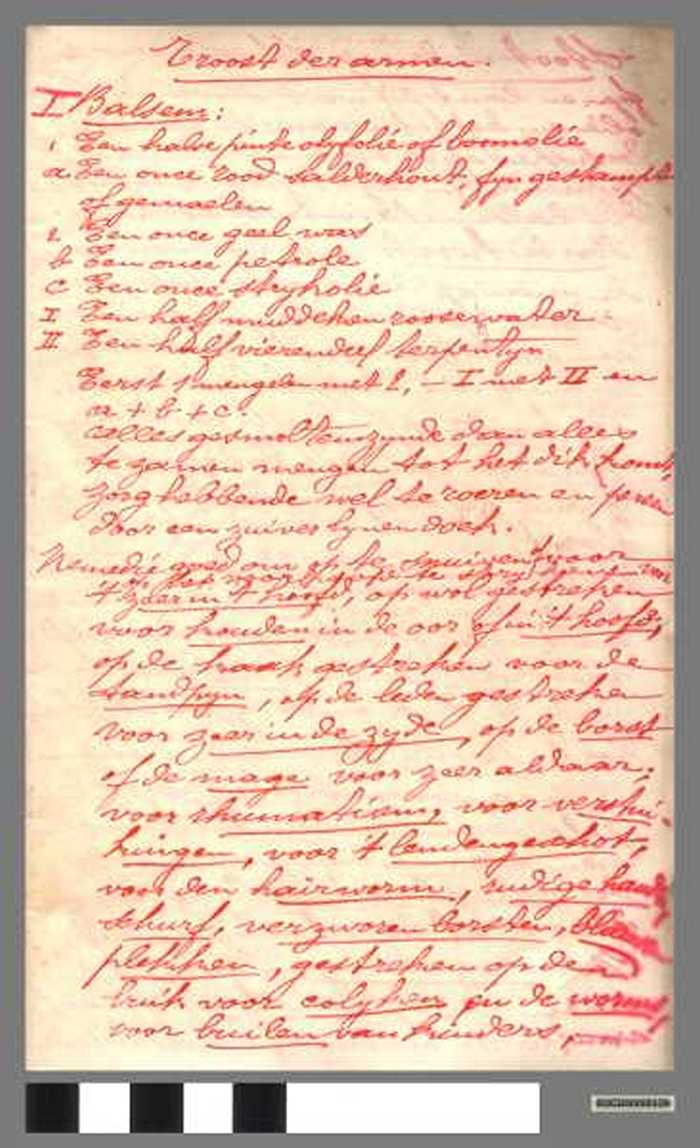 Troost der armen.
I Balsem:
1 Een halve pinte olyfolie of boomolie
a Een once rood salderhout, fyn gestampt
of gemaelen
2 Een once geel was
b Een once petrole
c Een once stryholie
I Een half muddeken roosewater
II Een half vierendeel terpentyn
Eerst 1 mengelen met 2, — I met II en
a + b + c.
alles gesmolten zynde dan alles
te zamen mengen tot het dik komt,
zorg hebbende wel te roeren en
door een zuiver lynen doek.
Remedie goed om op te snuiven voor
't zeer in 't hoofd, op wol gestreken
voor kouden in de oor of in 't hoofd,
op de kaak gestreken voor de
tandpyn, op de leden gestreken
voor zeer in de zyde, op de borst
of de mage voor zeer aldaar,
voor rhumatism, voor verstui-
kingen, voor 't lendengeschot,
voor den hairworm, rudige hand
schurf, verzworen borsten, blauwe
plekken, gestreken op den
buik voor colyken en de worms,
voor builen van kinders,